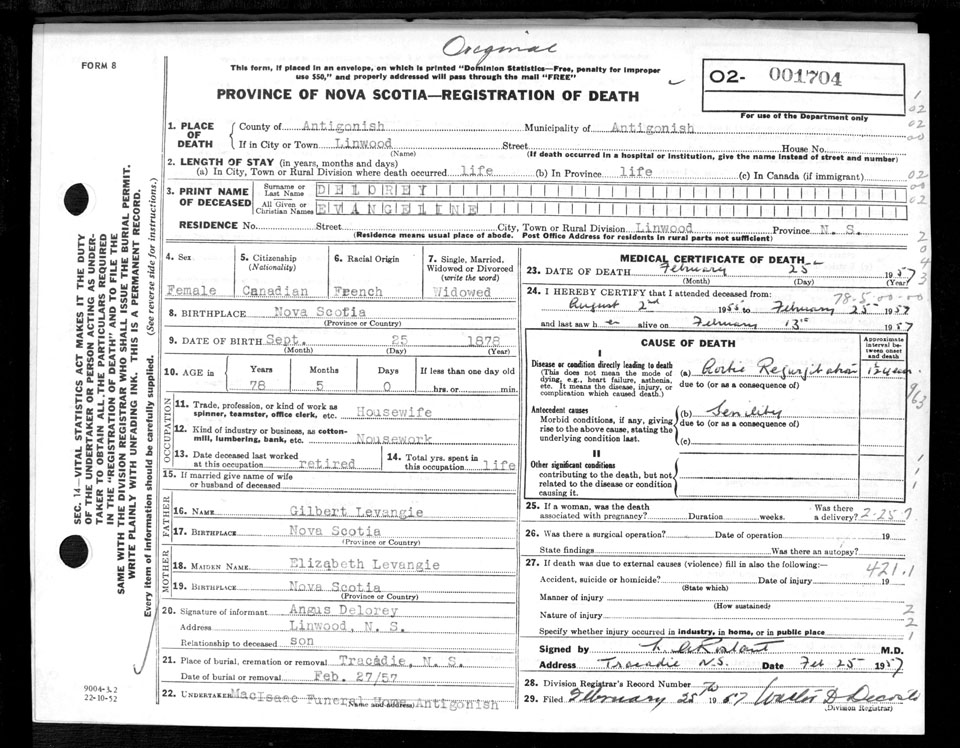 Original
FORM 8
This form, if placed in an envelope, on which is printed "Dominion Statistics—Free, penalty for improper
use $50," and properly addressed will pass through the mail "FREE"
O2- 001704
For use of the Department only
PROVINCE OF NOVA SCOTIA—REGISTRATION OF DEATH
1. PLACE OF DEATH
County of Antigonish Municipality of Antigonish
If in City or Town Linwood Street House No.
(Name) (If death occurred in a hospital or institution, give the name instead of street and number)
2. LENGTH OF STAY (in years, months and days)
(a) In City, Town or Rural Division where death occurred life (b) In Province life (c) In Canada (if immigrant)
3. PRINT NAME OF DECEASED
Surname or Last Name DELOREY
All Given or Christian Names EVANGELINE
RESIDENCE No. Street City, Town or Rural Division Linwood Province N. S.
(Residence means usual place of abode. Post Office Address for residents in rural parts not sufficient)
4. Sex
Female
5. Citizenship (Nationality)
Canadian
6. Racial Origin
French
7. Single, Married, Widowed or Divorced (write the word)
Widowed
8. BIRTHPLACE Nova Scotia
(Province or Country)
9. DATE OF BIRTH Sept. 25 1878
(Month) (Day) (Year)
10. AGE in Years Months Days If less than one day old
78 5 0 hrs. or min.
OCCUPATION
11. Trade, profession, or kind of work as spinner, teamster, office clerk, etc. Housewife
12. Kind of industry or business, as cotton-mill, lumbering, bank, etc. Nousework
13. Date deceased last worked at this occupation retired
14. Total yrs. spent in this occupation life
15. If married give name of wife or husband of deceased
FATHER
16. NAME Gilbert Levangie
17. BIRTHPLACE Nova Scotia
(Province or Country)
MOTHER
18. MAIDEN NAME Elizabeth Levangie
19. BIRTHPLACE Nova Scotia
(Province or Country)
20. Signature of informant Angus Delorey
Address Linwood, N. S.
Relationship to deceased son
21. Place of burial, cremation or removal Tracadie, N. S.
Date of burial or removal Feb. 27/57
22. UNDERTAKER MacIsaac Funeral Home Antigonish
(Name and address)
MEDICAL CERTIFICATE OF DEATH
23. DATE OF DEATH February 25 1957
(Month) (Day) (Year)
78-5-00-00
24. I HEREBY CERTIFY that I attended deceased from:
August 2nd 1955 to February 25 1957
and last saw her alive on February 13 1957
CAUSE OF DEATH
Approximate interval between onset and death
I
Disease or condition directly leading to death
(This does not mean the mode of dying, e.g., heart failure, asthenia, etc. It means the disease, injury, or complication which caused death.)
(a) Aortic Regurgitation
due to (or as a consequence of)
Antecedent causes
Morbid conditions, if any, giving rise to the above cause, stating the underlying condition last.
(b) Senility
due to (or as a consequence of)
(c)
II
Other significant conditions
contributing to the death, but not related to the disease or condition causing it.
25. If a woman, was the death associated with pregnancy? Duration weeks. Was there a delivery?
2-25-7
26. Was there a surgical operation? Date of operation 19
State findings Was there an autopsy?
27. If death was due to external causes (violence) fill in also the following:—
421.1
Accident, suicide or homicide? Date of injury 19
(State which)
Manner of injury
(How sustained)
Nature of injury
Specify whether injury occurred in industry, in home, or in public place
Signed by M.D.
Address Tracadie N.S. Date Feb 25 1957
28. Division Registrar's Record Number
29. Filed February 25th 1957
(Division Registrar)
SEC. 14—VITAL STATISTICS ACT MAKES IT THE DUTY
OF THE UNDERTAKER OR PERSON ACTING AS UNDER-
TAKER TO OBTAIN ALL THE PARTICULARS REQUIRED
IN THE "REGISTRATION OF DEATH" AND TO FILE THE
SAME WITH THE DIVISION REGISTRAR WHO SHALL ISSUE THE BURIAL PERMIT.
WRITE PLAINLY WITH UNFADING INK. THIS IS A PERMANENT RECORD.
Every item of information should be carefully supplied. (See reverse side for instructions.)
9004-3.2
22-10-52